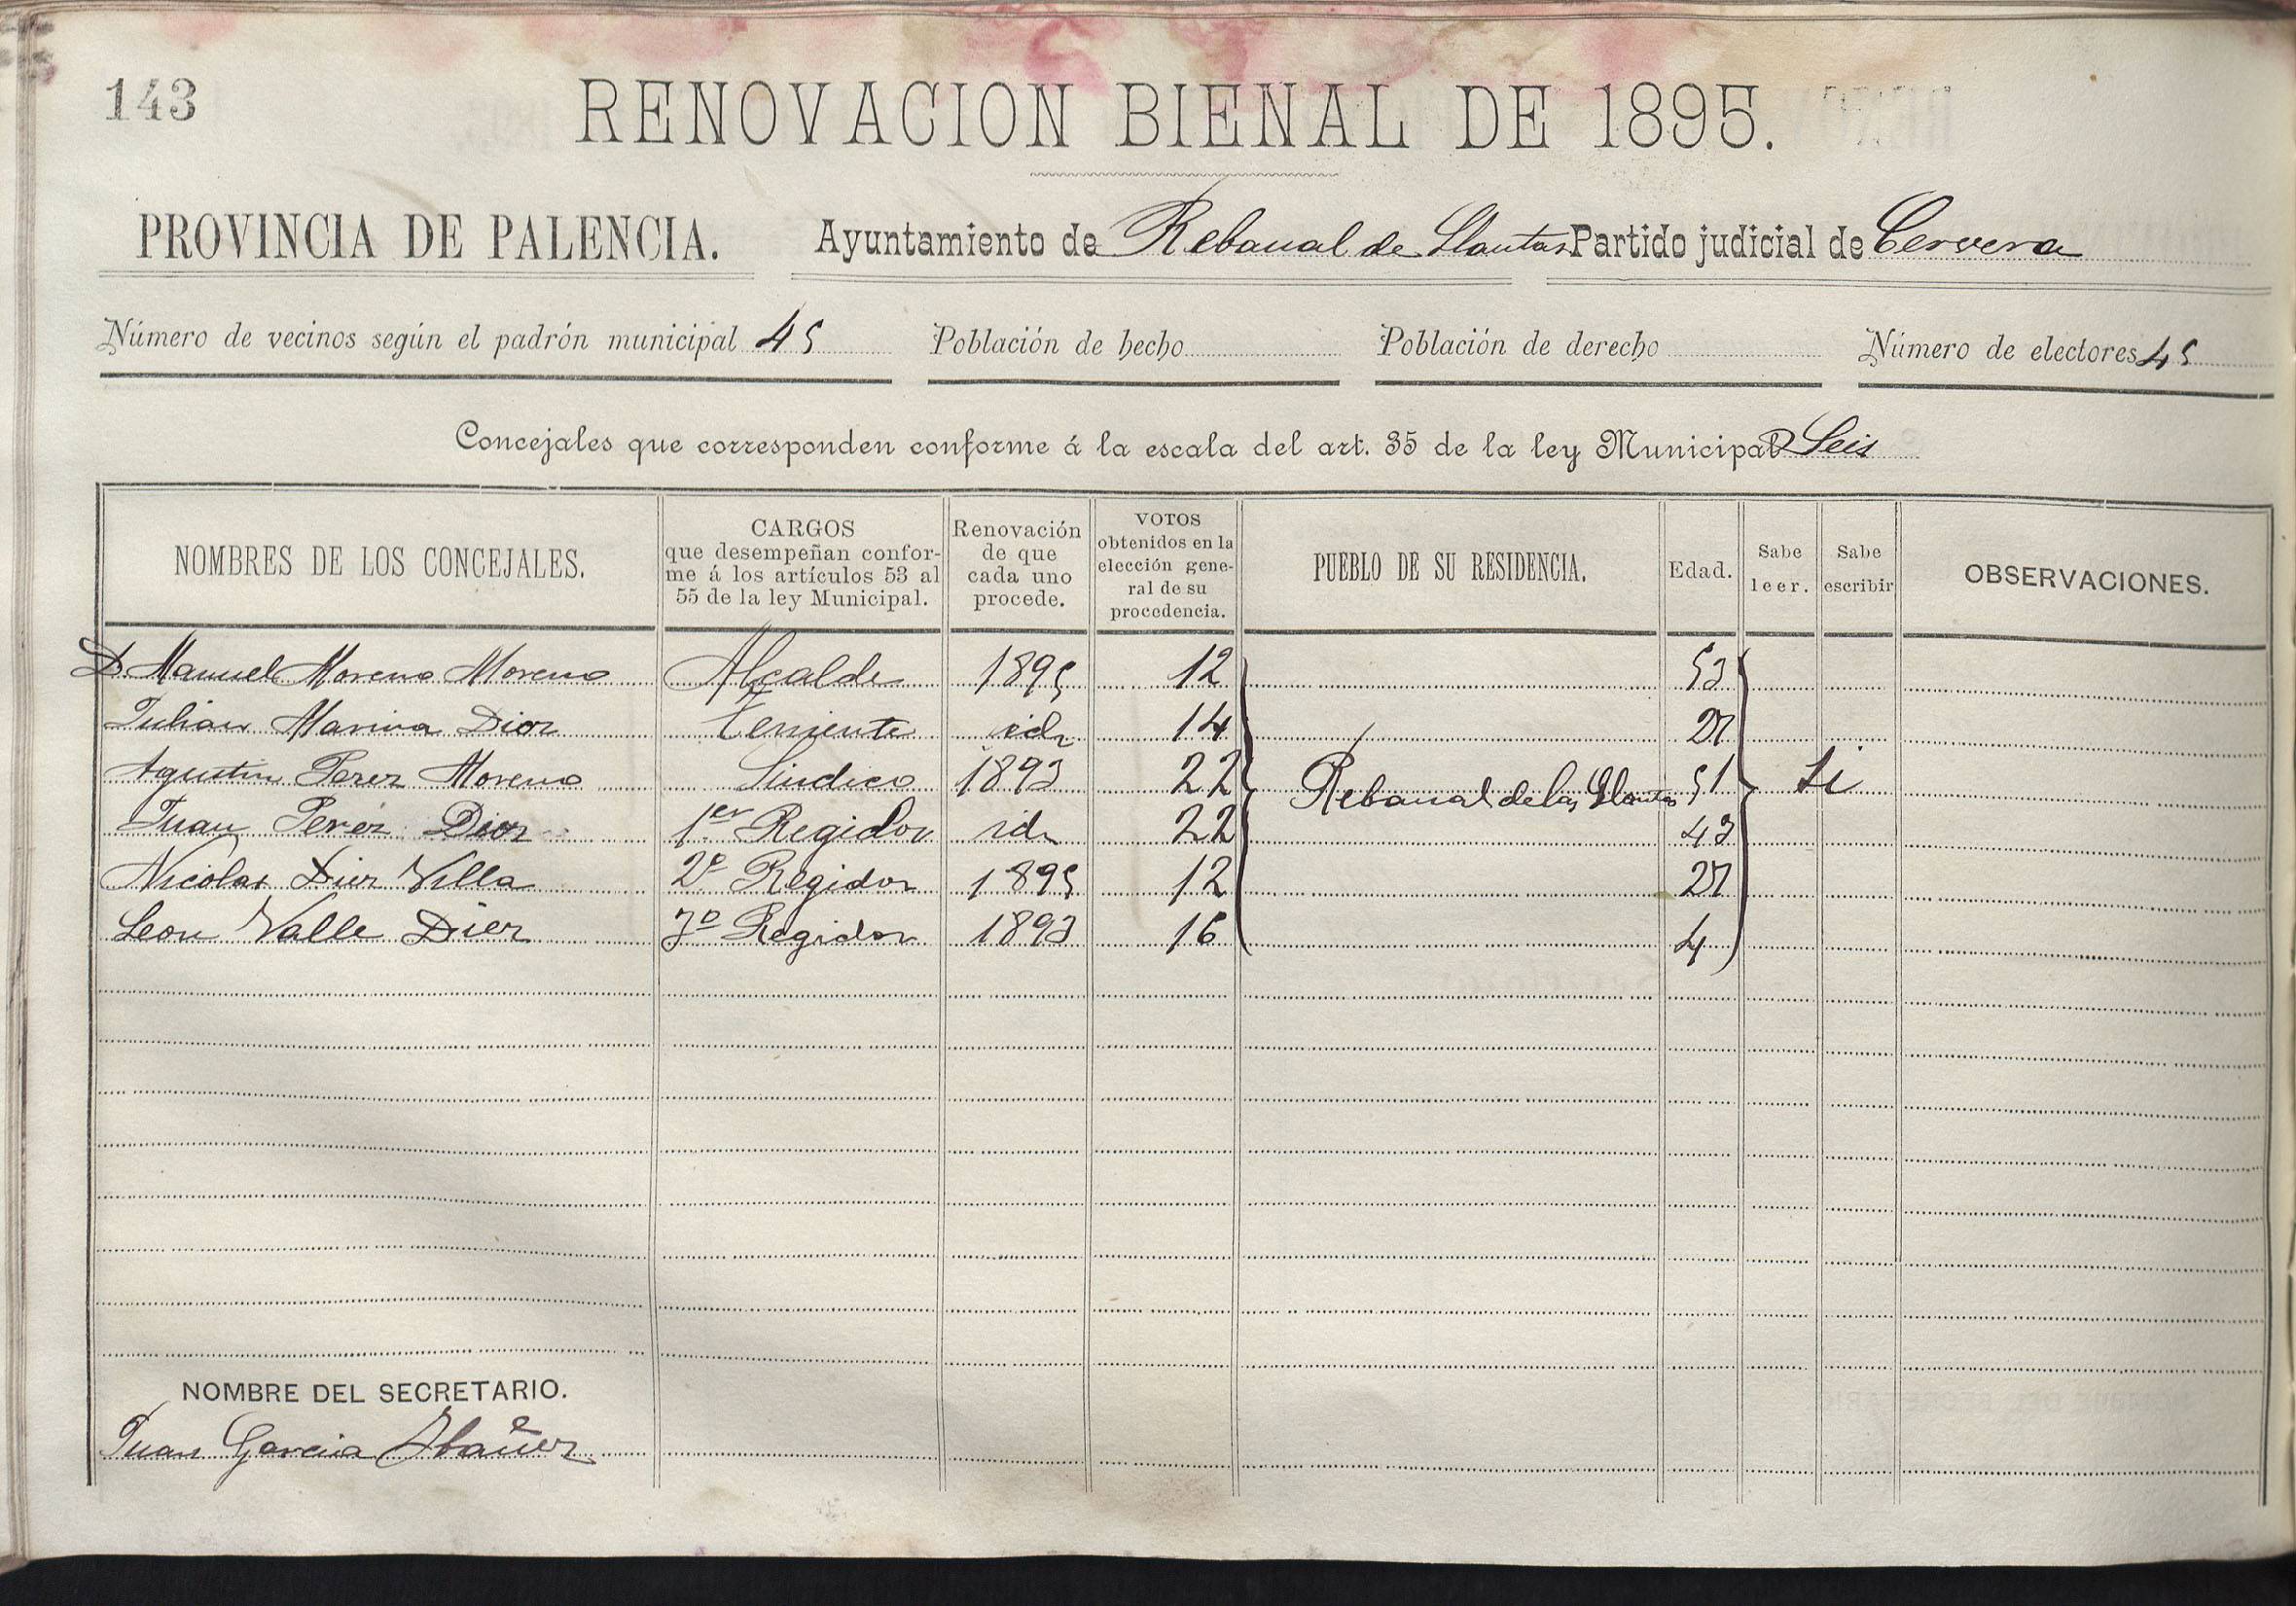 143
RENOVACION BIENAL DE 1895.
PROVINCIA DE PALENCIA. Ayuntamiento de Rebanal de Llantas Partido judicial de Cervera
Número de vecinos según el padrón municipal 45 Población de hecho Población de derecho Número de electores 45
Concejales que corresponden conforme á la escala del art. 35 de la ley Municipal Seis
NOMBRES DE LOS CONCEJALES.
CARGOS
que desempeñan confor-
me á los artículos 53 al
55 de la ley Municipal.
Renovación
de que
cada uno
procede.
VOTOS
obtenidos en la
elección gene-
ral de su
procedencia.
PUEBLO DE SU RESIDENCIA.
Edad.
Sabe
leer.
Sabe
escribir
OBSERVACIONES.
D. Manuel Moreno Moreno Alcalde 1895 12 53
Julian Marina Diez Teniente id 14 27
Agustin Perez Moreno Sindico 1893 22 Rebanal de las Llantas 51 Si
Juan Perez Diez 1er Regidor id 22 43
Nicolas Diez Villa 2º Regidor 1895 12 27
Leon Valle Diez 3º Regidor 1893 16 4
NOMBRE DEL SECRETARIO.
Juan Garcia Ibañez